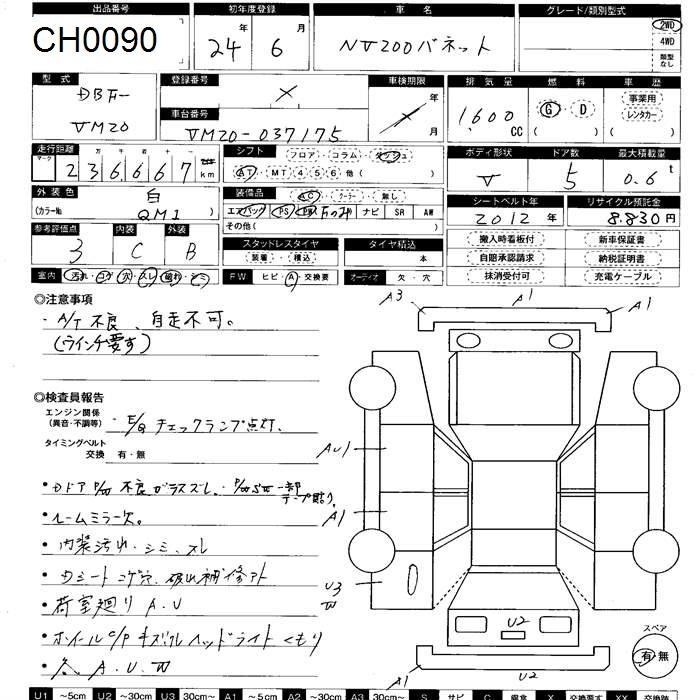 出品番号 初年度登録 車名 グレード/類別型式
CH0090 24年 6月 NV200バネット 2WD
4WD
類型なし
型式 登録番号 車検期限 排気量 燃料 車歴
DBF- × 年 事業用
車台番号 × 月 1,600cc G・D レンタカー
VM20 VM20-037175 ( ) ( )
走行距離 シフト フロア・コラム・ダッシュ ボディ形状 ドア数 最大積載量
マーク 十万 万 千 百 十 一
236667km AT・MT(4・5・6)他( ) V 5 0.6t
外装色 白 装備品 AC・クーラー・無し シートベルト年 リサイクル預託金
(カラーNo. QM1) エアバッグ PS PW ナビ SR AW 2012年 8,830円
参考評価点 内装 外装 その他( ) 搬入時看板付 新車保証書
3 C B スタッドレスタイヤ タイヤ積込 自賠承認請求 納税証明書
装着・積込 本 抹消受付可 充電ケーブル
室内 汚れ・コゲ・穴・スレ・破れ・シミ FW ヒビ・A・交換要 オーディオ 欠・穴
◎注意事項
・A/T不良、自走不可。
(ウインチ要す)
A3 A1 A1
◎検査員報告
エンジン関係
(異音・不調等) ・E/Gチェックランプ点灯、
タイミングベルト
交換 有・無
AU1
・DドアP/W不良ガラスズレ、・P/W SW一部
テープ貼り。
A1
・ルームミラー欠。
・内装汚れ、シミ、スレ
・Dシートコゲ穴、破れ補修アト
U3
W
・荷室廻りA.U
U2
スペア
・ホイールC/Pキズ ヘッドライトくもり
有・無
・A.U.W
A1 U2
U1 ~5cm U2 ~30cm U3 30cm~ A1 ~5cm A2 ~30cm A3 30cm~ S サビ C 腐食 X 交換要す XX 交換跡